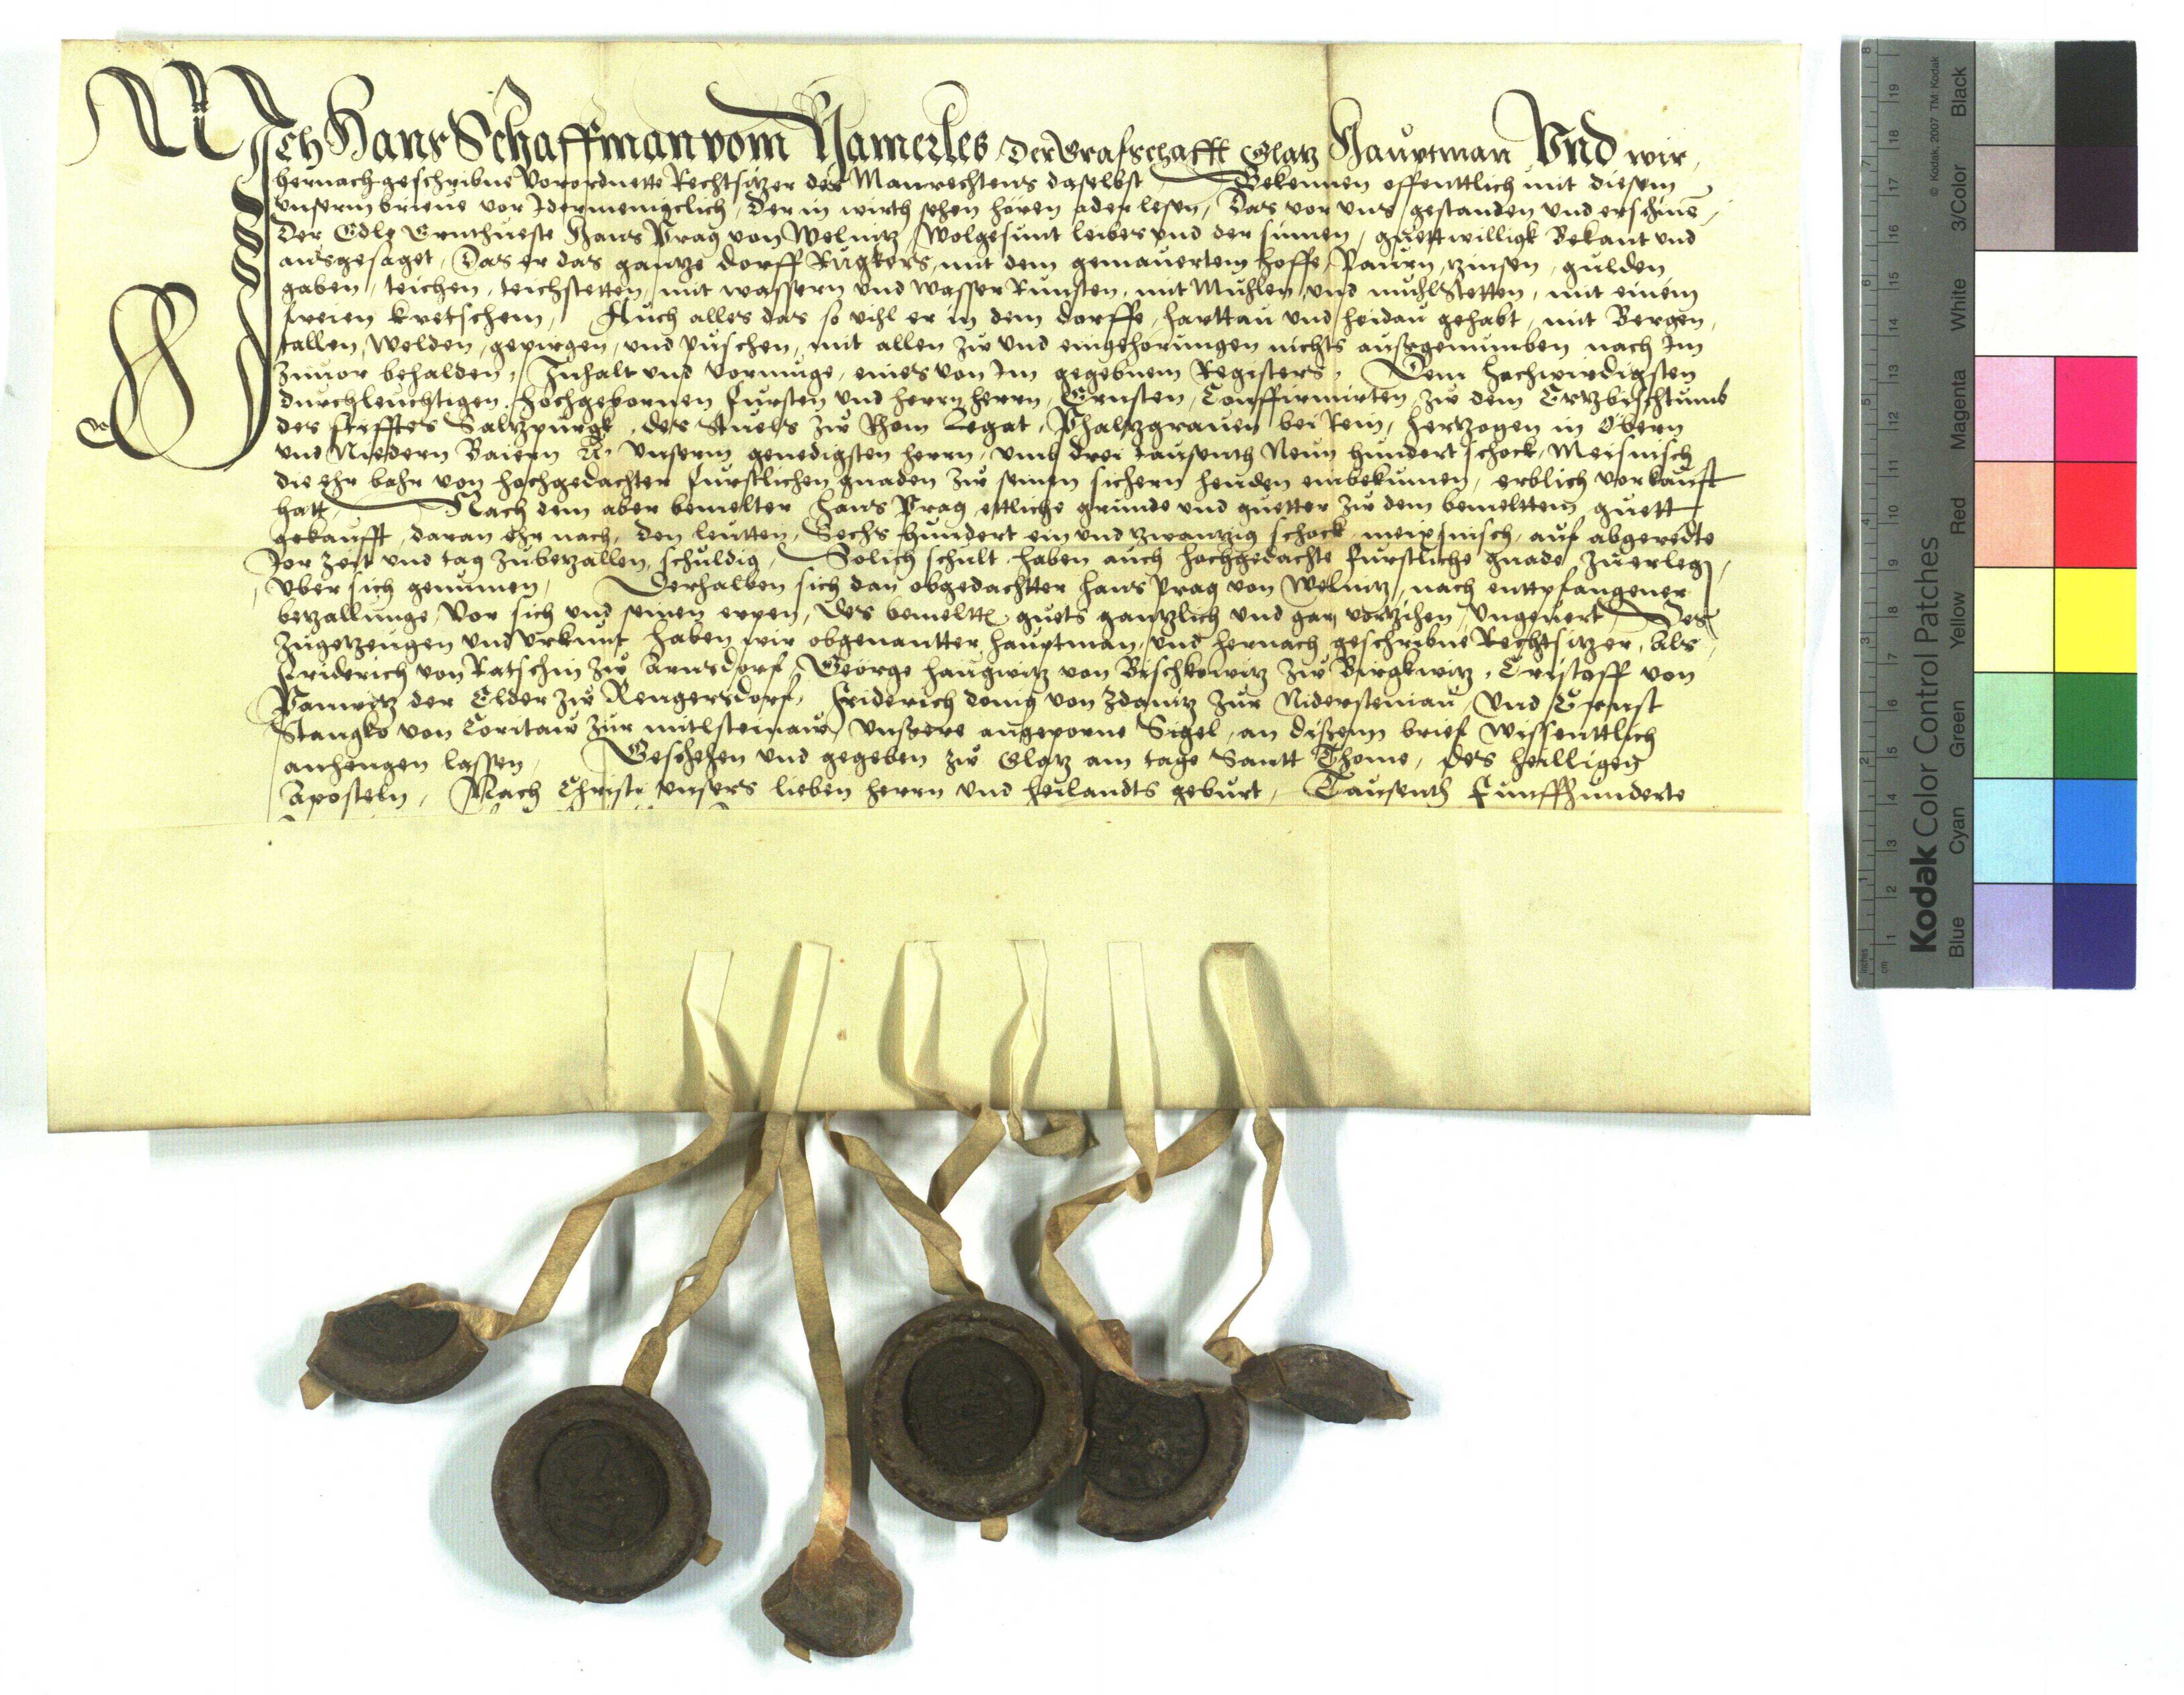 Ich Hans Schaffman vom Hamerles Der Grafschafft Glatz Hauptman Vnd wir,
hernach geschribne Vorordnette Rechtsitzer des Manrechtens daselbst Bekennen offenttlich mit diesem
vnserm brieue vor Idermenigclich, Der in wirth sehen hören ader lesen, Das vor vns gestanden vnd erschinē,
Der Edle Ernthueste Hans Prag von Welnitz, Wolgesunt leibes vnd der sinnen, guettwilligk Bekant vnd
ausgesaget, Das er das gantze dorff Rügkers, mit dem gemauertem hoffe, Paurn, zinsen, gulden,
gaben, teichen, teichstetten, mit wassern vnd wasser Runsten, mit Muhlen vnd muhlstetten, mit einem
freien kretschem, Auch alles das so vihl er in dem dorffe, harttau vnd heidau gehabt, mit Bergen,
tallen, Welden, gepirgen, vnd püschen, mit allen zw vnd eingehorungen nichts aussgenumben nach Im
zuuor behalden, Inhalt vnd Vormüge, eines von Im gegebnem Registers, Dem hochwirdigsten
durchleuchtigen, hochgebornen fursten vnd herrn herrn, Ernsten, Confirmirten zw dem Ertzbischtumb
des stifftes Saltzpurgk, des Stuels zw Rhom Legat, Phaltzgrauen bei Rein, hertzogen in Obern
vnd Niedern Baiern &c vnserm genedigsten herrn, vmb drei tausenth Neun hundert schock, Meisnisch
die ehr bahr von hochgedachter furstlichen gnaden zw seinen sichern henden einbekumen, erblich vorkauft
hatt Nach dem aber bemelter hans Prag ettliche grunde vnd guetter zw dem bemeltten guett
gekaufft, daran ehr nach, den leutten, Sechs hundert ein vnd zwantzig schock meixsnisch, auf abgeredte
Jor zeit vnd tag zubetzallen, schuldig, Solich schult haben auch hochgedachte furstliche gnade, zuerleḡ,
vber sich genumen, Derhalben sich dan obgedachtter hans Prag von Welnitz, nach enttpfangener
betzallunge, vor sich vnd seinen erpen, des bemeltt guets gantzlich vnd gar vortzihen, vngeuert, Des
zugetzeugen vnd vrkunt haben wir obgenantter hauptman, vnd hernach geschribne Rechtsitzer, Als
Friderich von Ratschin zw Arnsdorf, George haugwitz von Bischkowitz zw Birgkwitz, Cristoff von
Panwitz der Elder zw Rengersdorf, Friderich donig von Zdanitz zur Nidersteinau, Vnd Ernst
Stangko von Coritaw zur mitlsteinaw, vnsere angeporne Sigel, an disenn brief wissenttlich
anhengen lassen, Geschehen vnd gegeben zw Glatz am tage Santt Thome, des heilligen
Aposteln, Nach Christi vnsers lieben herrn vnd heilandts geburt, Tausenth Funffhunderte
Kodak Color Control Patches
© Kodak, 2007 TM: Kodak
Blue Cyan Green Yellow Red Magenta White 3/Color Black
inches 1 2 3 4 5 6 7 8
cm 1 2 3 4 5 6 7 8 9 10 11 12 13 14 15 16 17 18 19